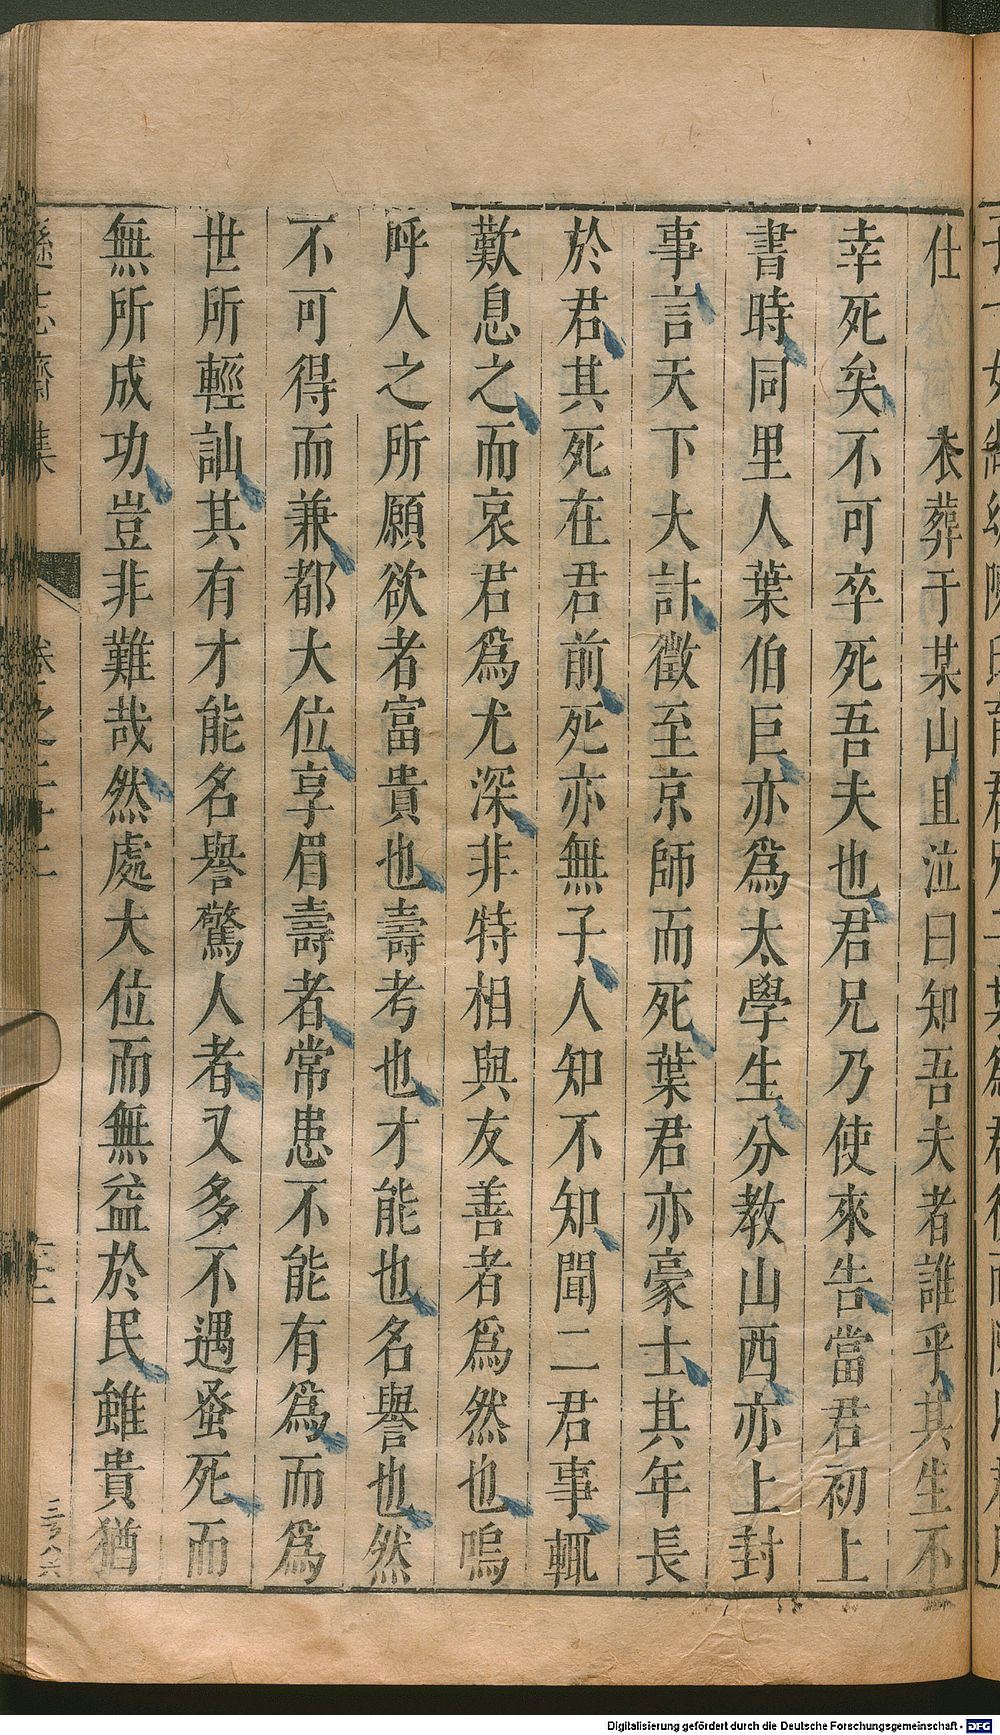 仕　　未葬于某山且泣曰知吾夫者誰乎其生不
幸死矣不可卒死吾夫也君兄乃使來告當君初上
書時同里人葉伯巨亦爲太學生分教山西亦上封
事言天下大計徵至京師而死葉君亦豪士其年長
於君其死在君前死亦無子人知不知聞二君事輒
歎息之而哀君爲尤深非特相與友善者爲然也嗚
呼人之所願欲者富貴也壽考也才能也名譽也然
不可得而兼都大位享眉壽者常患不能有爲而爲
世所輕訕其有才能名譽驚人者又多不遇蚤死而
無所成功豈非難哉然處大位而無益於民雖貴猶
遜志齋集　卷之二十二
Digitalisierung gefördert durch die Deutsche Forschungsgemeinschaft - DFG